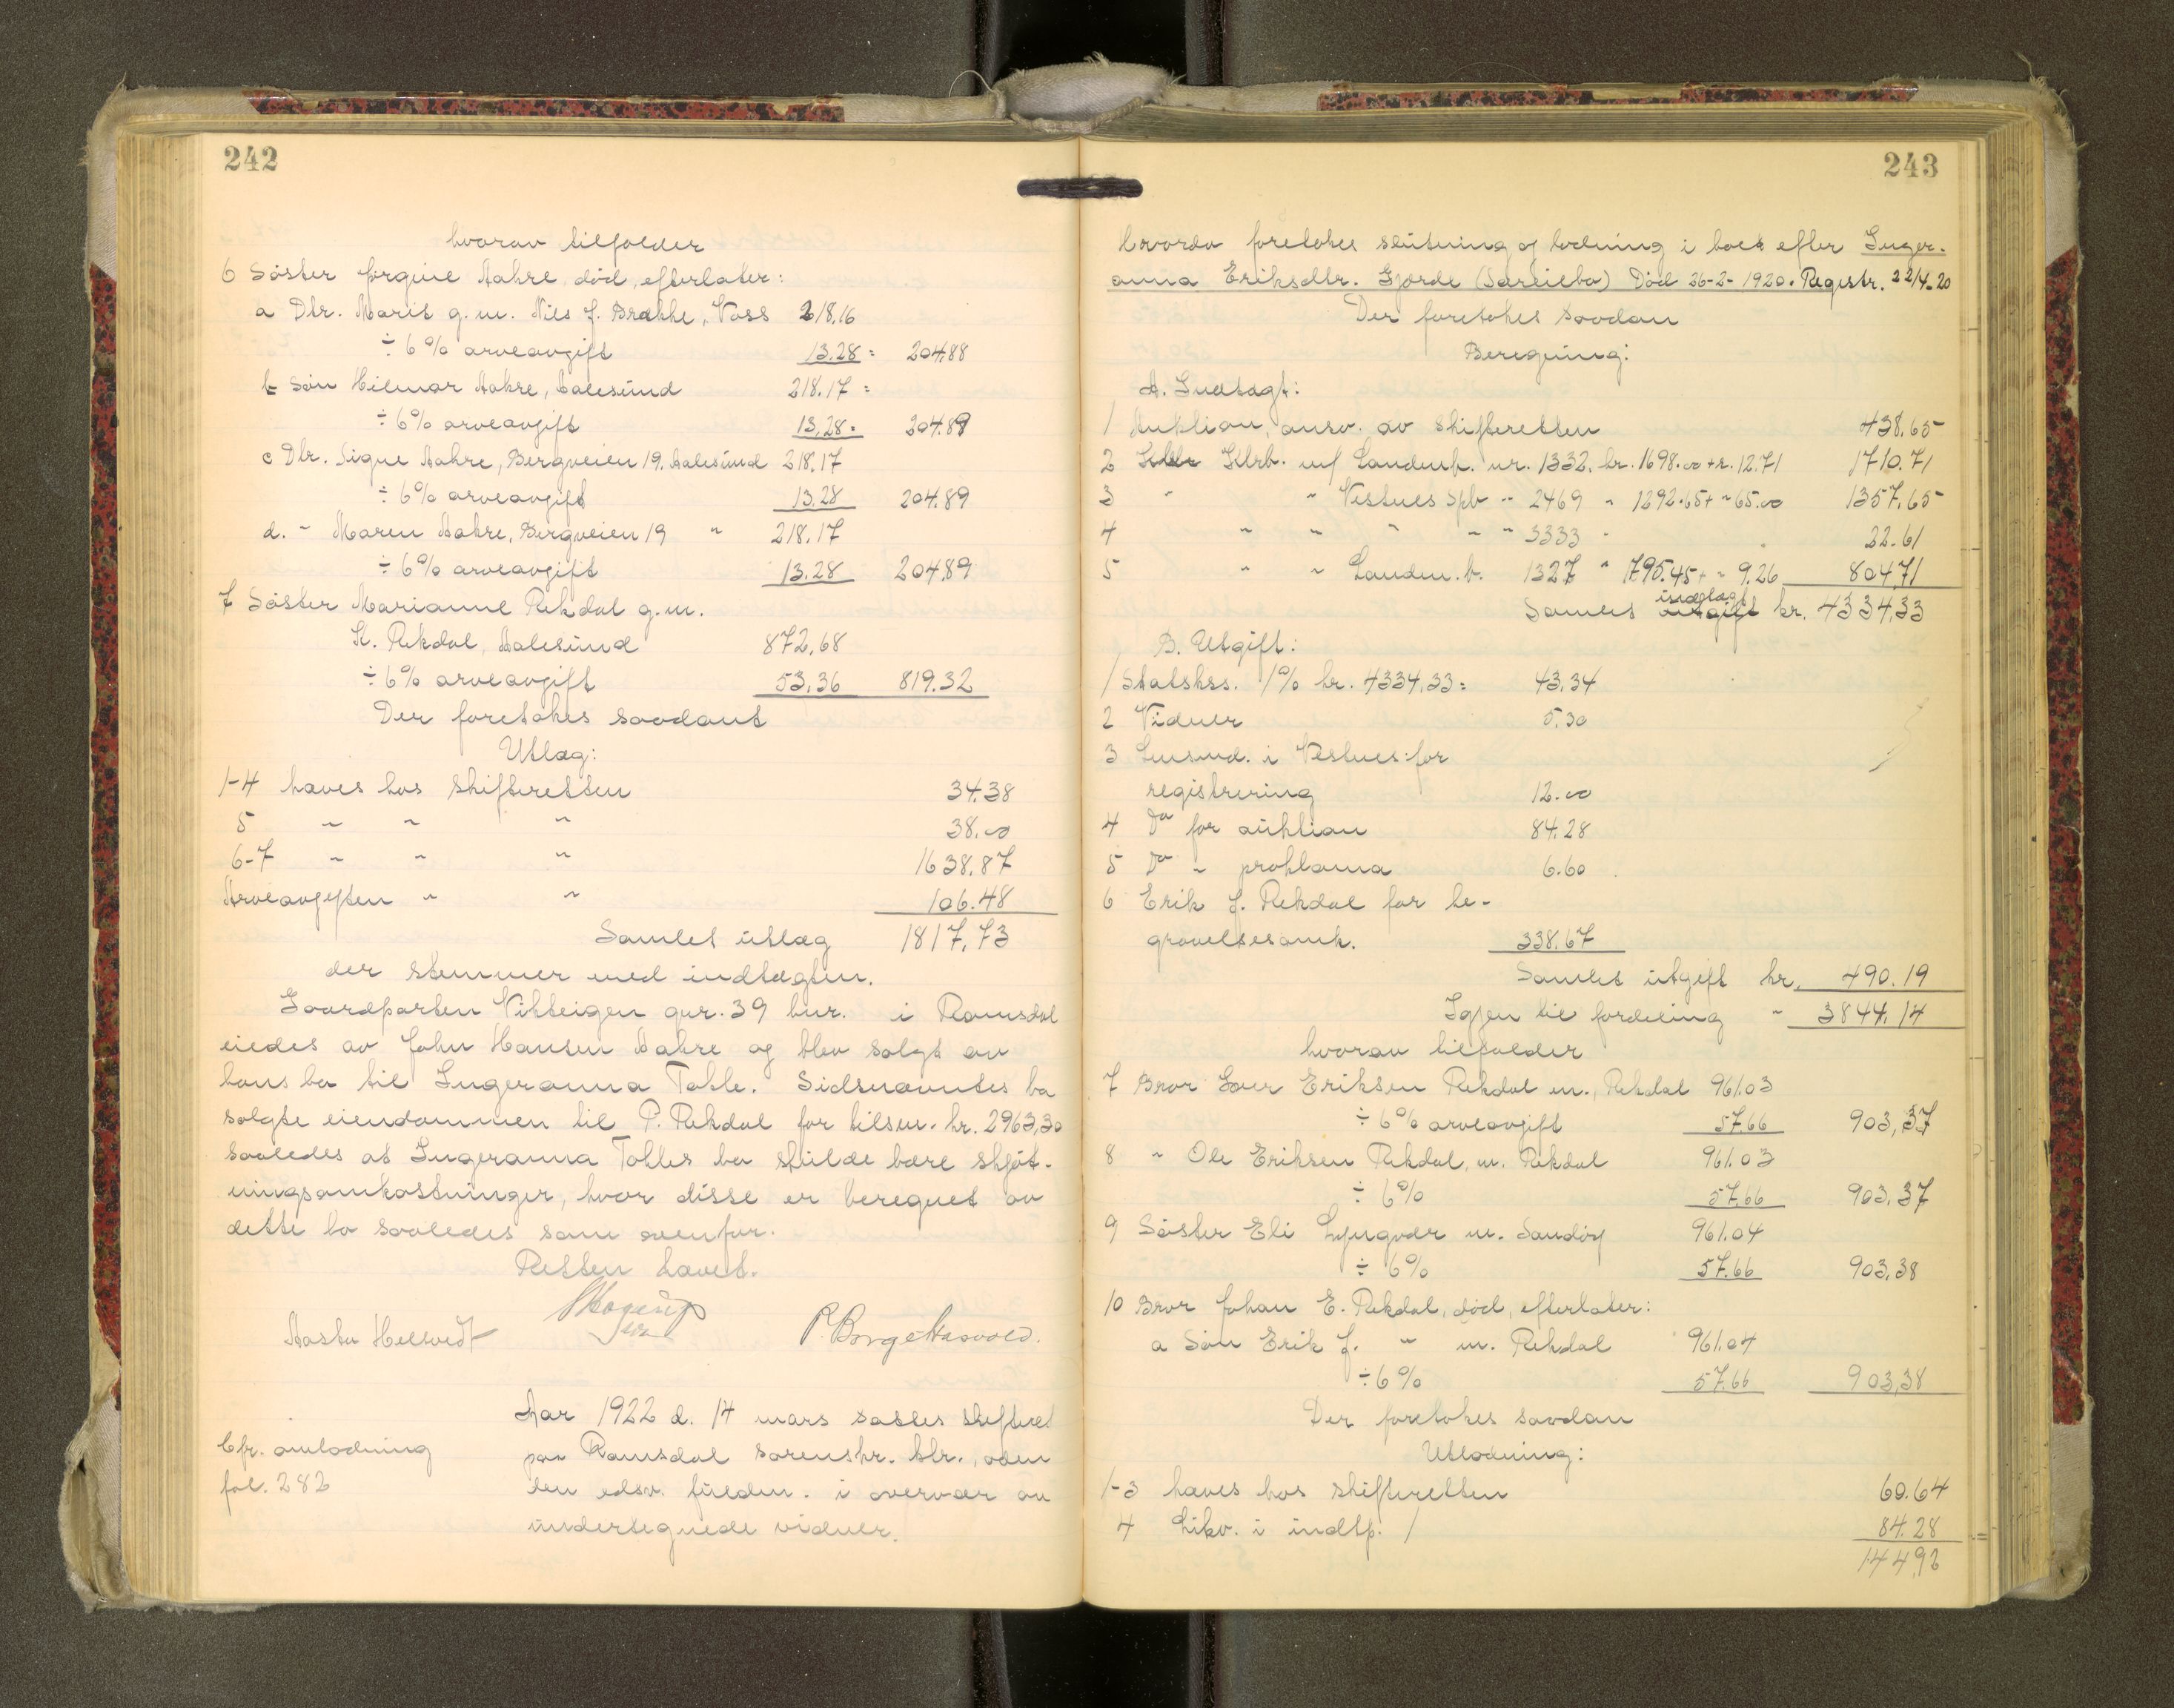 242
hvorav tilfalder
6 Søster Jørgine Aakre, død, efterlater:
a Dtr. Marit g.m. Nils J. Brække, Voss 218,16
÷ 6% arveavgift 13.28 = 204.88
b Søn Hilmar Aakre, Aalesund 218.17 =
÷ 6% arveavgift 13.28 = 204.89
c Dtr. Signe Aakre, Bergveien 19, Aalesund 218.17
÷ 6% arveavgift 13.28 204.89
d. " Maren Aakre, Bergveien 19 " 218.17
÷ 6% arveavgift 13.28 204.89
7 Søster Marianne Rekdal g.m.
K. Rekdal, Aalesund 872,68
÷ 6% arveavgift 53,36 819.32
Der foretokes saadant
Utlæg:
1-4 haves hos skifteretten 34.38
5 " " " 38.00
6-7 " " " 1638.87
Arveavgiften " " 106.48
Samlet utlæg 1817,73
der stemmer med indtægten.
Gaardparten Vikteigen gnr. 39 bnr. i Romsdal
eiedes av John Hansen Aakre og blev solgt av
hans bo til Ingeranna Tokle. Sidstnævntes bo
solgte eiendommen til P. Rekdal for tilsm. kr. 2963,30
saaledes at Ingeranna Tokles bo skulde bære skjøt-
ningsomkostninger, hvor disse er beregnet av
dette bo saaledes som ovenfor.
Retten hævet.
Aasta Hellvedt P. Borge Hasvold.
Aar 1922 d. 14 mars sattes skifteret
paa Romsdal sorenskr. ktr., av den
edsv. fuldm. i overvær av
undertegnede vidner.
Cfr. omlodning
fol. 282
243
Hvorda foretokes slutning og lodning i boet efter Inger-
anna Eriksdtr. Gjerde (Særeiebo) Død 26-2-1920. Registr. 22/4-20
Der foretokes saadan
Beregning:
A. Indtægt:
1 Auktion, ansv. av skifteretten 438.65
2 Ktrb. m/ Landmb. nr. 1332, kr. 1698.00 + r. 12.71 1710.71
3 " " Vestnes Spb " 2469 " 1292.65 + " 65.00 1357.65
4 " " " " " 3333 " 22.61
5 " " Landm.b. 1327 " 795.45 + " 9.26 804,71
Samlet indtægt kr. 4334,33
B. Utgift:
1 Statskss. 1% kr. 4334,33 = 43.34
2 Vidner 5.30
3 Lensmd. i Vestnes for
registrering 12.00
4 Do for auktion 84.28
5 Do " proklama 6.60
6 Erik J. Rekdal for be-
gravelsesomk. 338.67
Samlet utgift kr. 490.19
Igjen til fordeling " 3844,14
hvorav tilfalder
7 Bror Iver Eriksen Rekdal m., Rekdal 961.03
÷ 6% arveavgift 57.66 903,37
8 " Ole Eriksen Rekdal, m. Rekdal 961.03
÷ 6% 57.66 903,37
9 Søster Eli Lyngvær m. Sandøy 961.04
÷ 6% 57.66 903,38
10 Bror Johan E. Rekdal, død, efterlater:
a Søn Erik J. " m. Rekdal 961.04
÷ 6% 57.66 903,38
Der foretokes saadan
Utlodning:
1-3 haves hos skifteretten 60.64
4 Likv. i indtp. 1 84.28
144,92